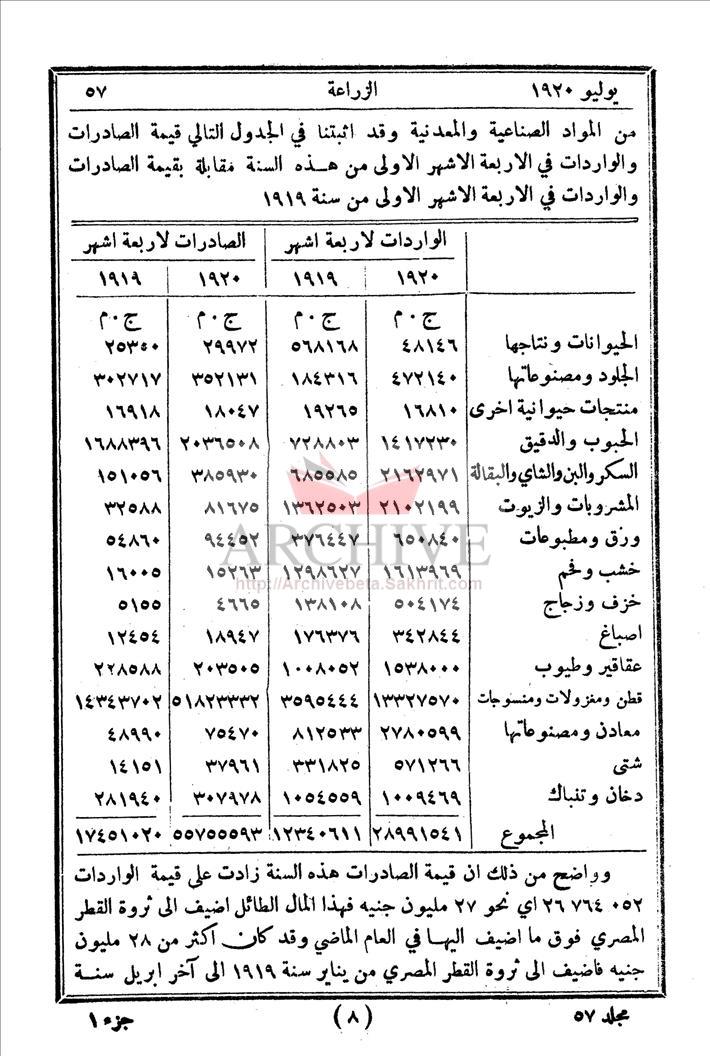 يوليو ١٩٢٠ الزراعة ٥٧
من المواد الصناعية والمعدنية وقد اثبتنا في الجدول التالي قيمة الصادرات
والواردات في الاربعة الاشهر الاولى من هذه السنة مقابلة بقيمة الصادرات
والواردات في الاربعة الاشهر الاولى من سنة ١٩١٩
الواردات لاربعة اشهر الصادرات لاربعة اشهر
١٩٢٠ ١٩١٩ ١٩٢٠ ١٩١٩
ج.م ج.م ج.م ج.م
الحيوانات ونتاجها ٤٨١٤٦ ٥٦٨١٦٨ ٢٩٩٧٢ ٢٥٣٤٠
الجلود ومصنوعاتها ٤٧٢١٤٠ ١٨٤٣١٦ ٣٥٢١٣١ ٣٠٢٧١٧
منتجات حيوانية اخرى ١٦٨١٠ ١٩٢٦٥ ١٨٠٤٧ ١٦٩١٨
الحبوب والدقيق ١٤١٧٢٣٠ ٧٢٨٨٠٣ ٢٠٣٦٥٠٨ ١٦٨٨٣٩٦
السكر والبن والشاي والبقالة ٢١٦٢٩٧١ ٦٨٥٥٨٥ ٣٨٥٩٣٠ ١٥١٠٥٦
المشروبات والزيوت ٢١٠٢١٩٩ ١٣٦٢٥٠٣ ٨١٦٧٥ ٣٢٥٨٨
ورق ومطبوعات ٦٥٠٨٤٠ ٣٧٦٤٤٧ ٩٤٤٥٢ ٥٤٨٦٠
خشب وفحم ١٦١٣٩٦٩ ١٢٩٨٦٢٧ ١٥٢٦٣ ١٦٠٠٥
خزف وزجاج ٥٠٤١٧٤ ١٣٨١٠٨ ٤٦٦٥ ٥١٥٥
اصباغ ٣٤٢٨٤٤ ١٧٦٣٧٦ ١٨٩٤٧ ١٢٤٥٤
عقاقير وطيوب ١٥٣٨٠٠٠ ١٠٠٨٠٥٢ ٢٠٣٥٠٥ ٢٢٨٥٨٨
قطن ومغزولات ومنسوجات ١٣٣٢٧٥٧٠ ٣٥٩٥٤٤٤ ٥١٨٢٣٣٣٢ ١٤٣٤٣٧٠٢
معادن ومصنوعاتها ٢٧٨٠٥٩٩ ٨١٢٥٣٣ ٧٥٤٧٠ ٤٨٩٩٠
شتى ٥٧١٢٦٦ ٣٣١٨٢٥ ٣٧٩٦١ ١٤١٥١
دخان وتنباك ١٠٠٩٤٦٩ ١٠٥٤٥٥٩ ٣٠٧٩٧٨ ٢٨١٩٤٠
المجموع ٢٨٩٩١٥٤١ ١٢٣٤٠٦١١ ٥٥٧٥٥٥٩٣ ١٧٤٥١٠٢٠
وواضح من ذلك ان قيمة الصادرات هذه السنة زادت على قيمة الواردات
٢٦٧٦٤٠٥٢ اي نحو ٢٧ مليون جنيه فهذا المال الطائل اضيف الى ثروة القطر
المصري فوق ما اضيف اليها في العام الماضي وقد كان اكثر من ٢٨ مليون
جنيه فاضيف الى ثروة القطر المصري من يناير سنة ١٩١٩ الى آخر ابريل سنة
مجلد ٥٧ (٨) جزء ١
ARCHIVE
http://Archivebeta.Sakhrit.com